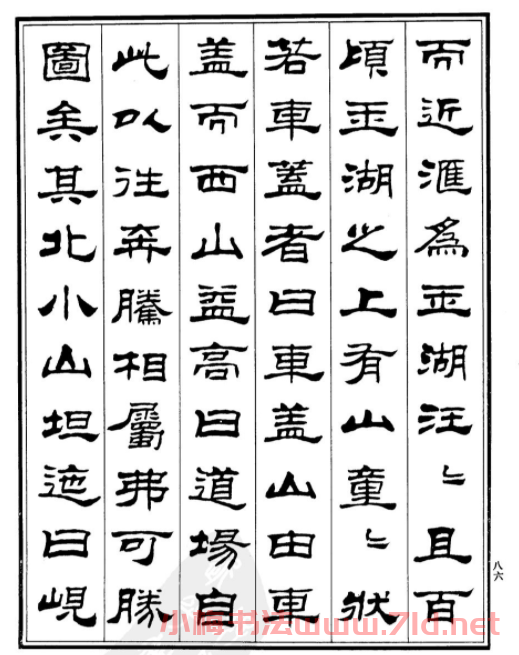 而近滙爲玉湖汪〻且百
頃玉湖之上有山童〻狀
若車蓋者曰車盖山由車
盖而西山益高曰道場自
此以往奔騰相屬弗可勝
圖矣其北小山坦迤曰峴
八六
小梅书法www.7ld.net